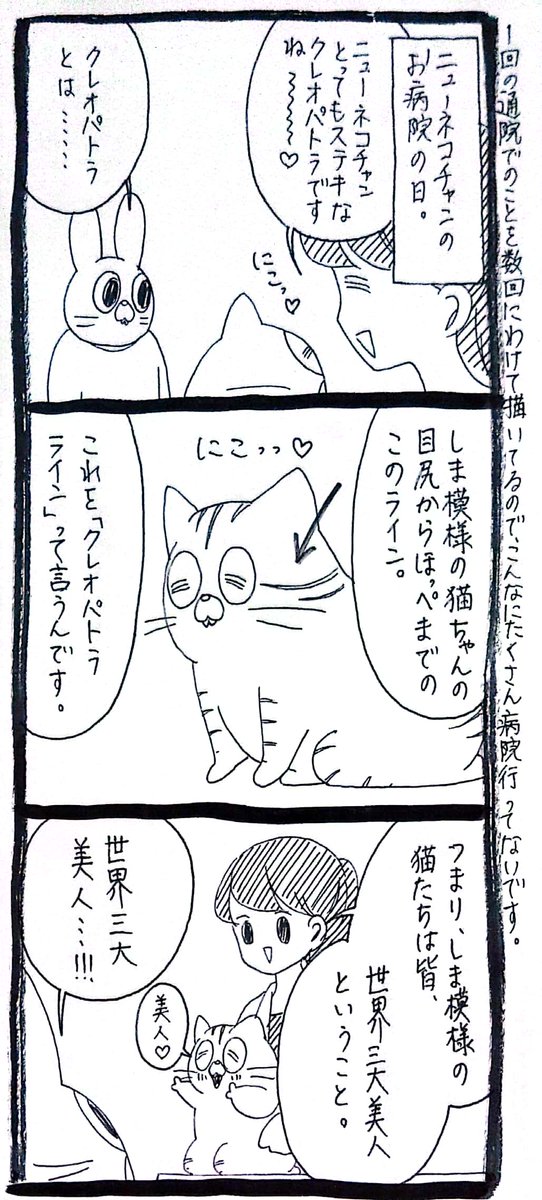 1回の通院でのことを数回にわけて描いてるので、こんなにたくさん病院行ってないです。
ニューネコチャンの
お病院の日。
ニューネコチャン
とってもステキな
クレオパトラです
ね〜〜〜♡
にこっ♡
クレオパトラ
とは……
しま模様の猫ちゃんの
目尻からほっぺまでの
このライン。
にこっっ♡
これを「クレオパトラ
ライン」って言うんです。
つまり、しま模様の
猫たちは皆、
世界三大美人
ということ。
美人♡
世界三大
美人…!!!